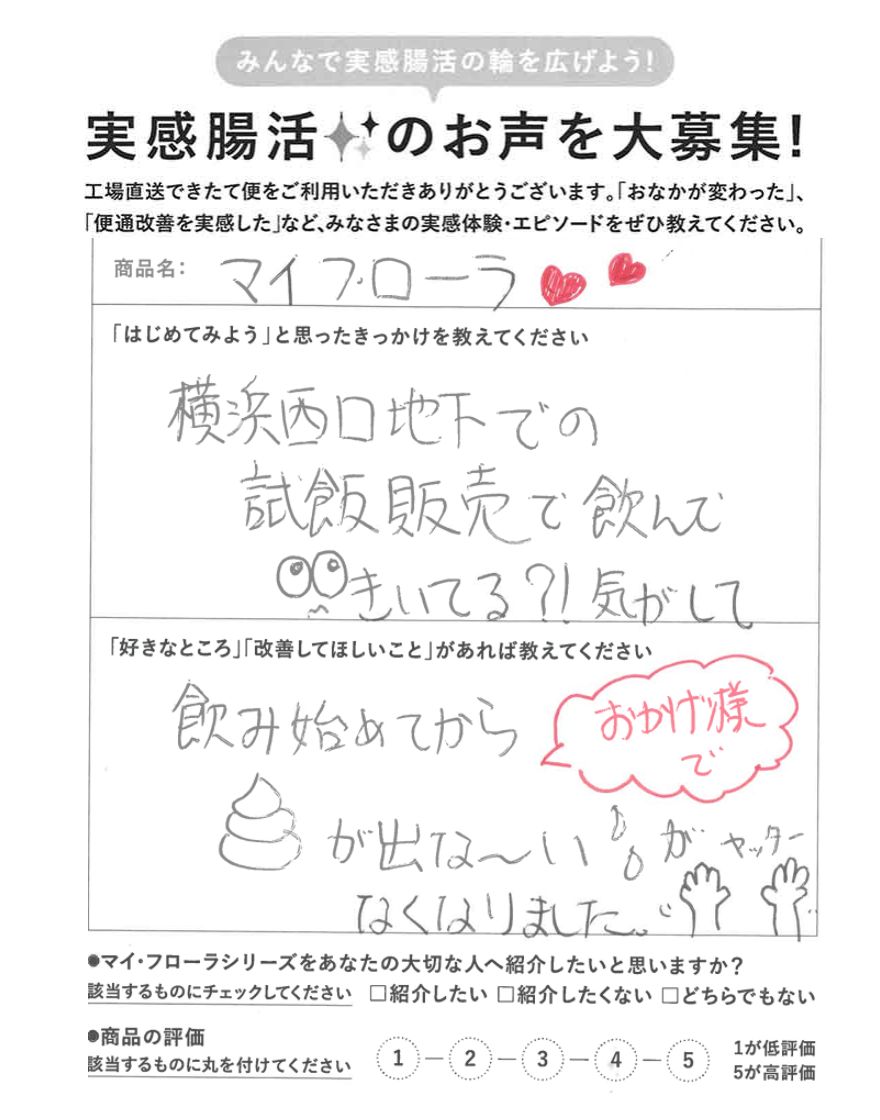 みんなで実感腸活の輪を広げよう!
実感腸活のお声を大募集!
工場直送できたて便をご利用いただきありがとうございます。「おなかが変わった」、
「便通改善を実感した」など、みなさまの実感体験・エピソードをぜひ教えてください。
商品名: マイフ・ローラ
「はじめてみよう」と思ったきっかけを教えてください
横浜西口地下での
試飯販売で飲んで
きいてる?!気がして
「好きなところ」「改善してほしいこと」があれば教えてください
飲み始めてから
おかげ様
で
が出な〜いが
ヤッター
なくなりました。
●マイ・フローラシリーズをあなたの大切な人へ紹介したいと思いますか?
該当するものにチェックしてください □紹介したい □紹介したくない □どちらでもない
●商品の評価
該当するものに丸を付けてください
1 — 2 — 3 — 4 — 5
1が低評価
5が高評価